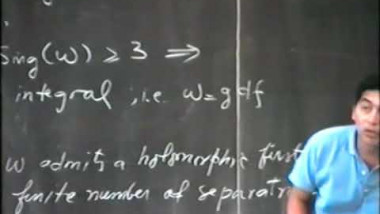 Sing(ω) ≥ 3 ⇒
integral, i.e. ω = g df
ω admits a holomorphic first
finite number of separatr